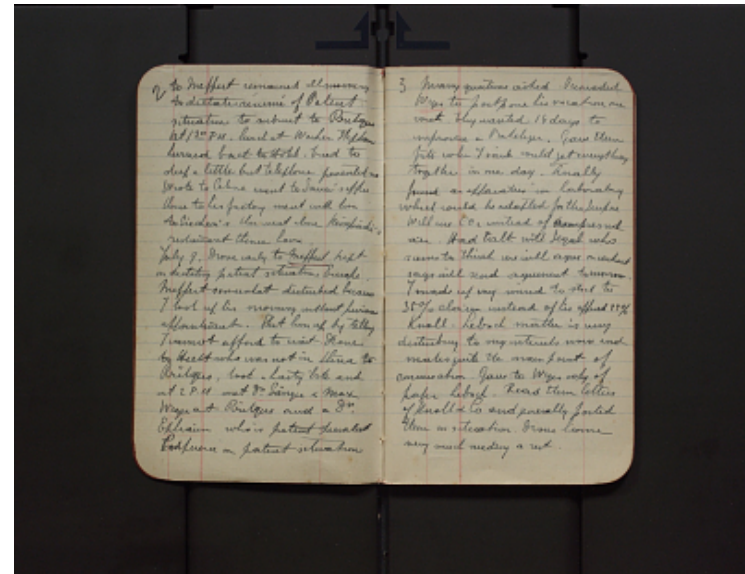 2 to Meffert remained all morning
to dictate resumé of Patent
situation to submit to Brütgers
at 12 P.M. lunch at
hurried back to Hotel. tried to
sleep a little but telephone prevented me
Wrote to Celine went to office
then to his factory went with him
to then went home
restaurant thence home
July 9. Drove early to Meffert kept
on dictating patent situation
Meffert somewhat disturbed because
I took up his morning without previous
appointment. Shut him up by telling
I cannot afford to wait Drove
to Hecht who was not in thence to
Brütgers, took a hasty bite and
at 2 P.M. met Dr Sänger & Max
Weger at Brütgers and a Dr.
Ephraim who is patent specialist
Conference on patent situation
3 Many questions asked. Persuaded
Weger to postpone his vacation one
week. They wanted 14 days to
a Bakelizer. Gave them
fits when I said could get everything
together in one day. Finally
found an apparatus in laboratory
which could be adapted for the purpose
Will use CO2 instead of compressed
air. Had talk with Segal who
seems to think we will agree on
says will send agreement tomorrow
I made up my mind to stick to
35% clause instead of his offered
Knoll. Lebach matter is very
disturbing to my interests now and
makes quite the main point of
conversation. Gave to Weger copy of
paper Lebach. Read them letters
of Knoll & Co and generally posted
them on situation Drove home
very much needing a rest.